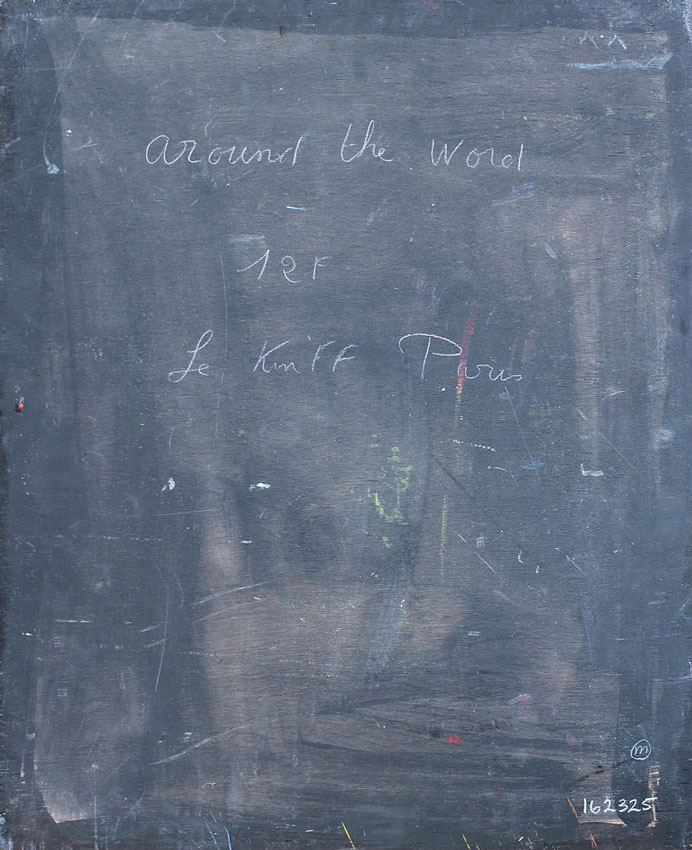 around the word
12F
Le Kniff Paris
m
162325